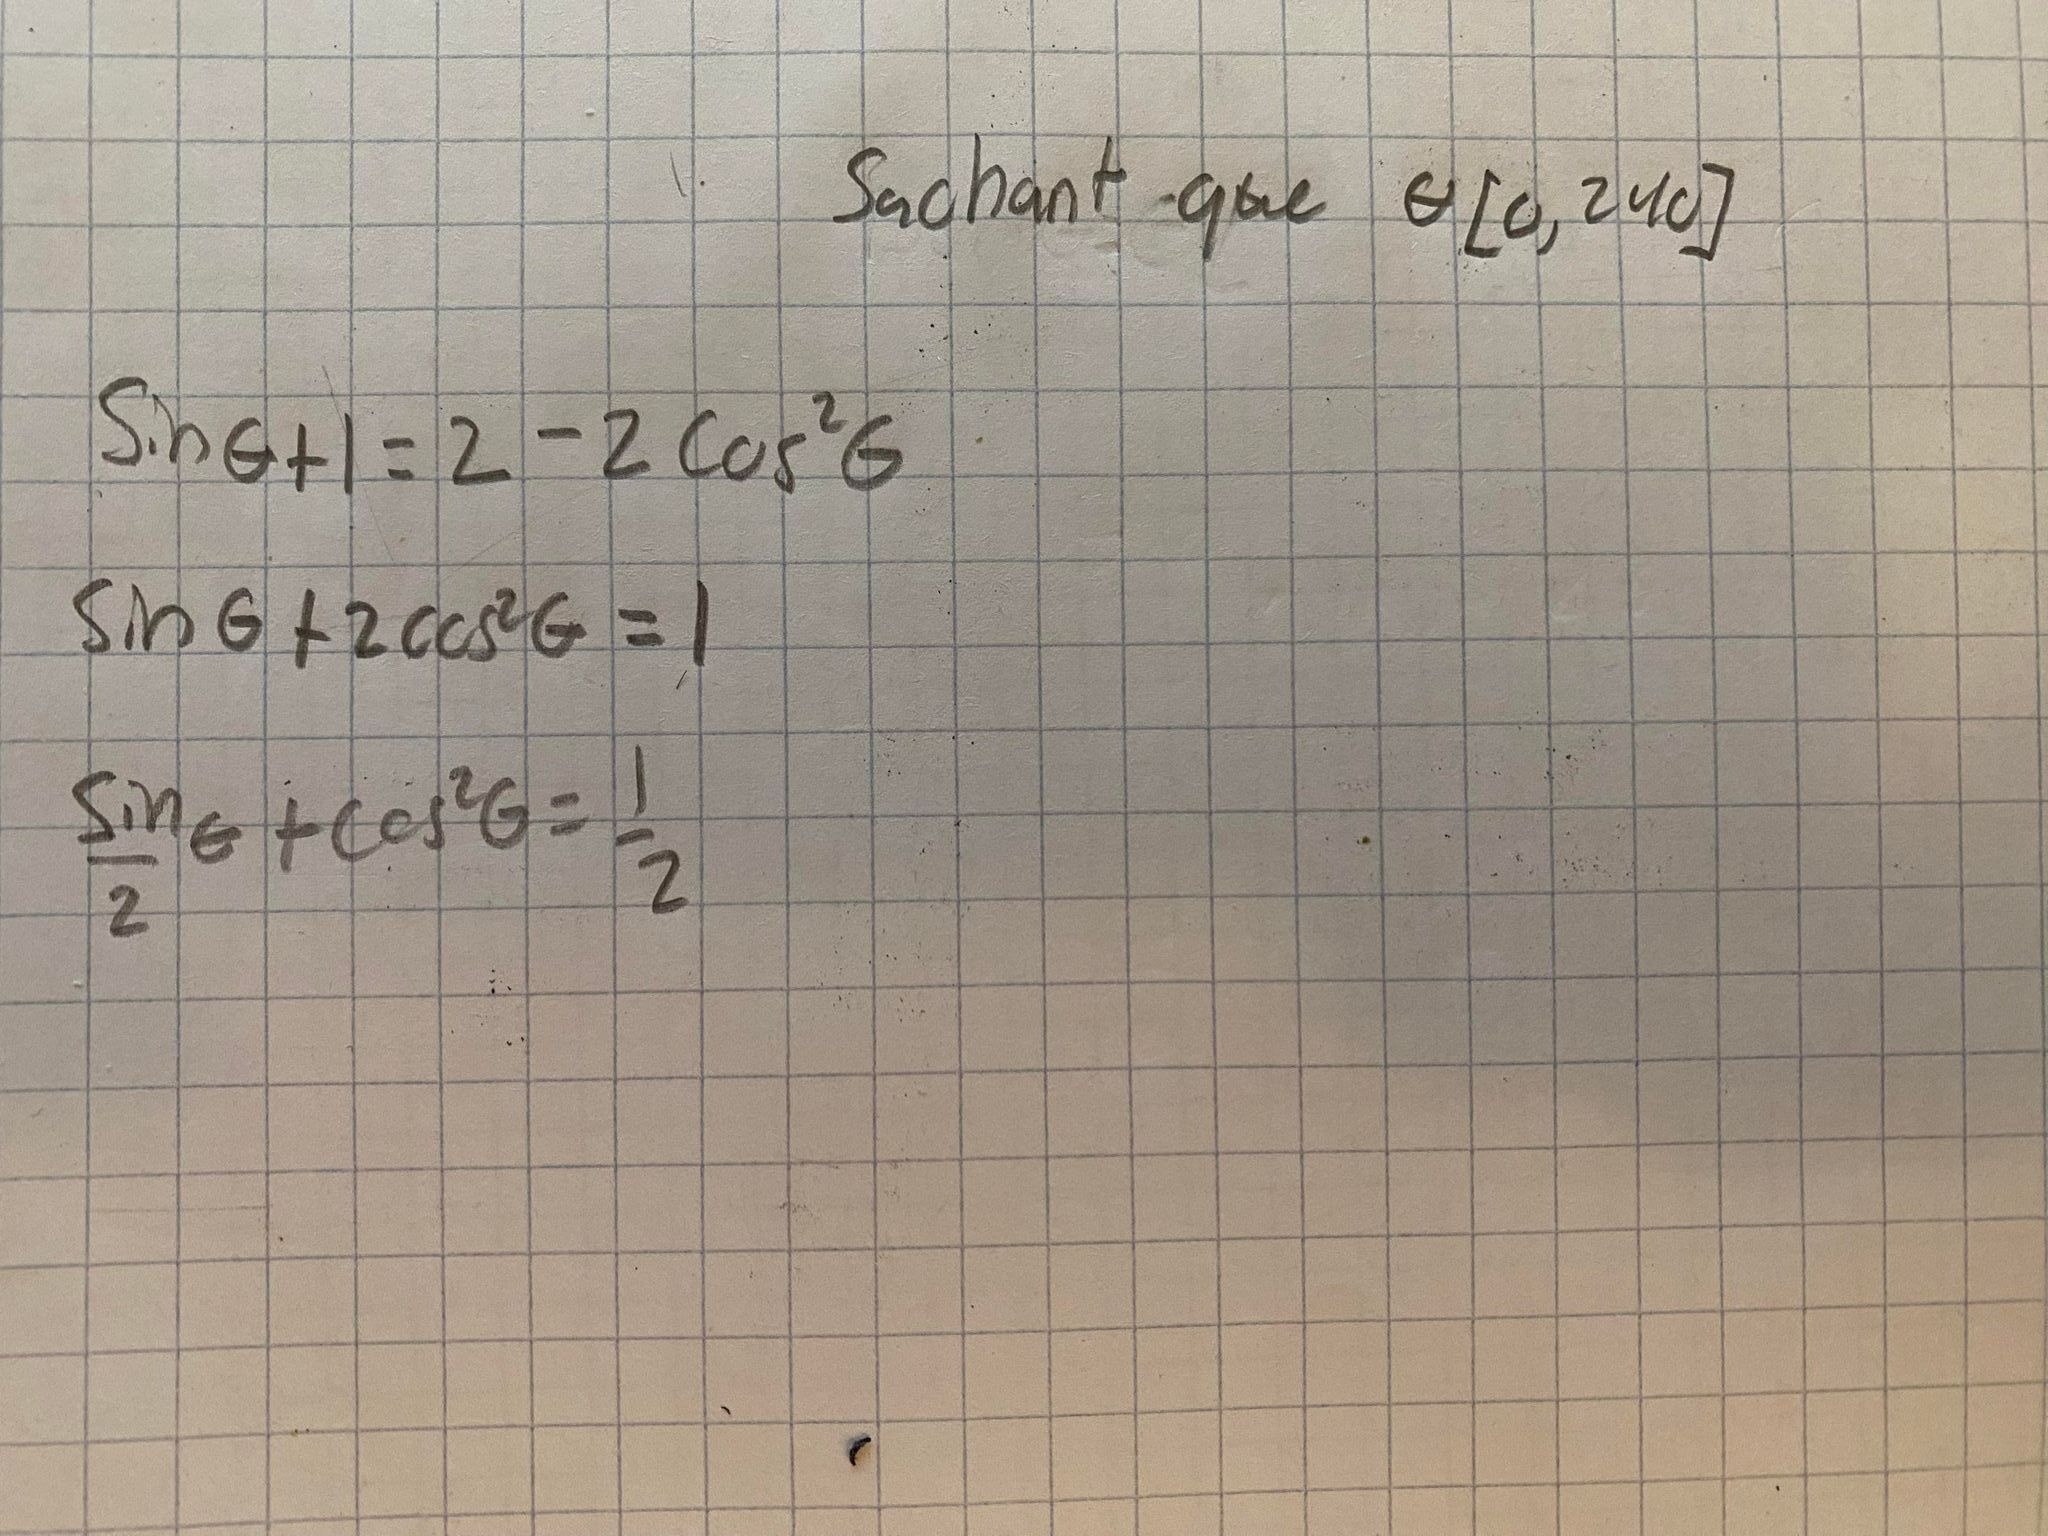 Sachant que θ[0,240]
Sinθ+1=2-2Cos²θ
Sinθ+2cos²θ=1
Sin/2 θ+cos²θ=1/2